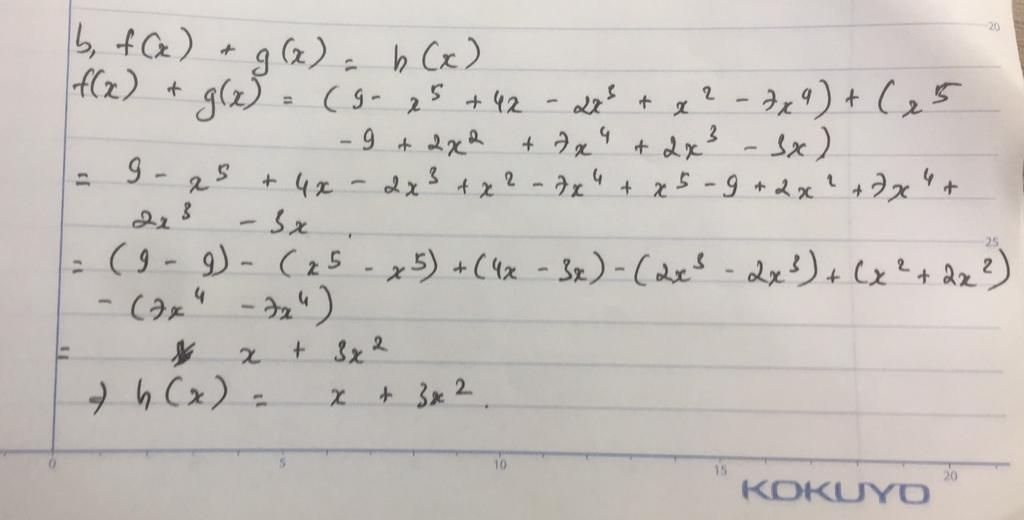 20
b, f(x) + g(x) = h(x)
f(x) + g(x) = (9 - x⁵ + 4x - 2x³ + x² - 7x⁴) + (x⁵
- 9 + 2x² + 7x⁴ + 2x³ - 3x)
= 9 - x⁵ + 4x - 2x³ + x² - 7x⁴ + x⁵ - 9 + 2x² + 7x⁴ +
2x³ - 3x.
25
= (9 - 9) - (x⁵ - x⁵) + (4x - 3x) - (2x³ - 2x³) + (x² + 2x²)
- (7x⁴ - 7x⁴)
= x + 3x²
→ h(x) = x + 3x².
0 5 10 15 20
KOKUYO